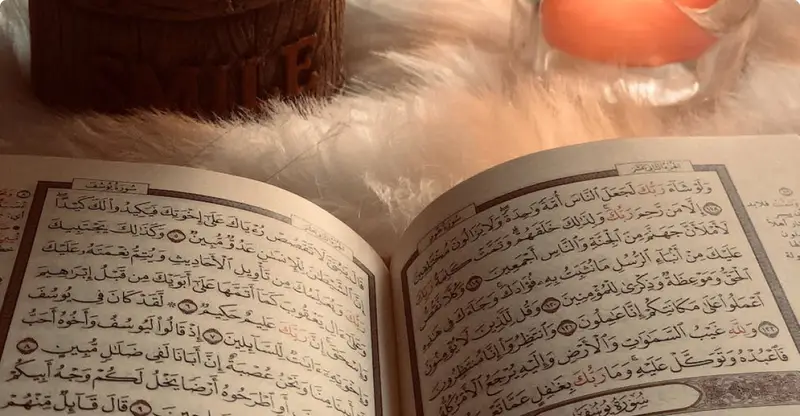 SMILE
الجزء الثاني عشر
سورة هود
وَلَوْ شَآءَ رَبُّكَ لَجَعَلَ ٱلنَّاسَ أُمَّةً وَٰحِدَةً وَلَا يَزَالُونَ مُخْتَلِفِينَ
١١٨ إِلَّا مَن رَّحِمَ رَبُّكَ وَلِذَٰلِكَ خَلَقَهُمْ وَتَمَّتْ كَلِمَةُ رَبِّكَ
لَأَمْلَأَنَّ جَهَنَّمَ مِنَ ٱلْجِنَّةِ وَٱلنَّاسِ أَجْمَعِينَ ١١٩ وَكُلًّا نَّقُصُّ
عَلَيْكَ مِنْ أَنۢبَآءِ ٱلرُّسُلِ مَا نُثَبِّتُ بِهِۦ فُؤَادَكَ وَجَآءَكَ فِى هَٰذِهِ
ٱلْحَقُّ وَمَوْعِظَةٌ وَذِكْرَىٰ لِلْمُؤْمِنِينَ ١٢٠ وَقُل لِّلَّذِينَ لَا يُؤْمِنُونَ
ٱعْمَلُوا۟ عَلَىٰ مَكَانَتِكُمْ إِنَّا عَٰمِلُونَ ١٢١ وَٱنتَظِرُوٓا۟ إِنَّا مُنتَظِرُونَ
١٢٢ وَلِلَّهِ غَيْبُ ٱلسَّمَٰوَٰتِ وَٱلْأَرْضِ وَإِلَيْهِ يُرْجَعُ ٱلْأَمْرُ كُلُّهُۥ
فَٱعْبُدْهُ وَتَوَكَّلْ عَلَيْهِ وَمَا رَبُّكَ بِغَٰفِلٍ عَمَّا
سُورَةُ يُوسُفَ
سورة يوسف
قَالَ يَٰبُنَىَّ لَا تَقْصُصْ رُءْيَاكَ عَلَىٰٓ إِخْوَتِكَ فَيَكِيدُوا۟ لَكَ كَيْدًا
إِنَّ ٱلشَّيْطَٰنَ لِلْإِنسَٰنِ عَدُوٌّ مُّبِينٌ ٥ وَكَذَٰلِكَ يَجْتَبِيكَ
رَبُّكَ وَيُعَلِّمُكَ مِن تَأْوِيلِ ٱلْأَحَادِيثِ وَيُتِمُّ نِعْمَتَهُۥ عَلَيْكَ
وَعَلَىٰٓ ءَالِ يَعْقُوبَ كَمَآ أَتَمَّهَا عَلَىٰٓ أَبَوَيْكَ مِن قَبْلُ إِبْرَٰهِيمَ
وَإِسْحَٰقَ إِنَّ رَبَّكَ عَلِيمٌ حَكِيمٌ ٦ ۞ لَّقَدْ كَانَ فِى يُوسُفَ
وَإِخْوَتِهِۦٓ ءَايَٰتٌ لِّلسَّآئِلِينَ ٧ إِذْ قَالُوا۟ لَيُوسُفُ وَأَخُوهُ أَحَبُّ
إِلَىٰٓ أَبِينَا مِنَّا وَنَحْنُ عُصْبَةٌ إِنَّ أَبَانَا لَفِى ضَلَٰلٍ مُّبِينٍ ٨
يُوسُفَ أَوِ ٱطْرَحُوهُ أَرْضًا يَخْلُ لَكُمْ وَجْهُ أَبِيكُمْ
٩ قَالَ قَآئِلٌ مِّنْهُمْ